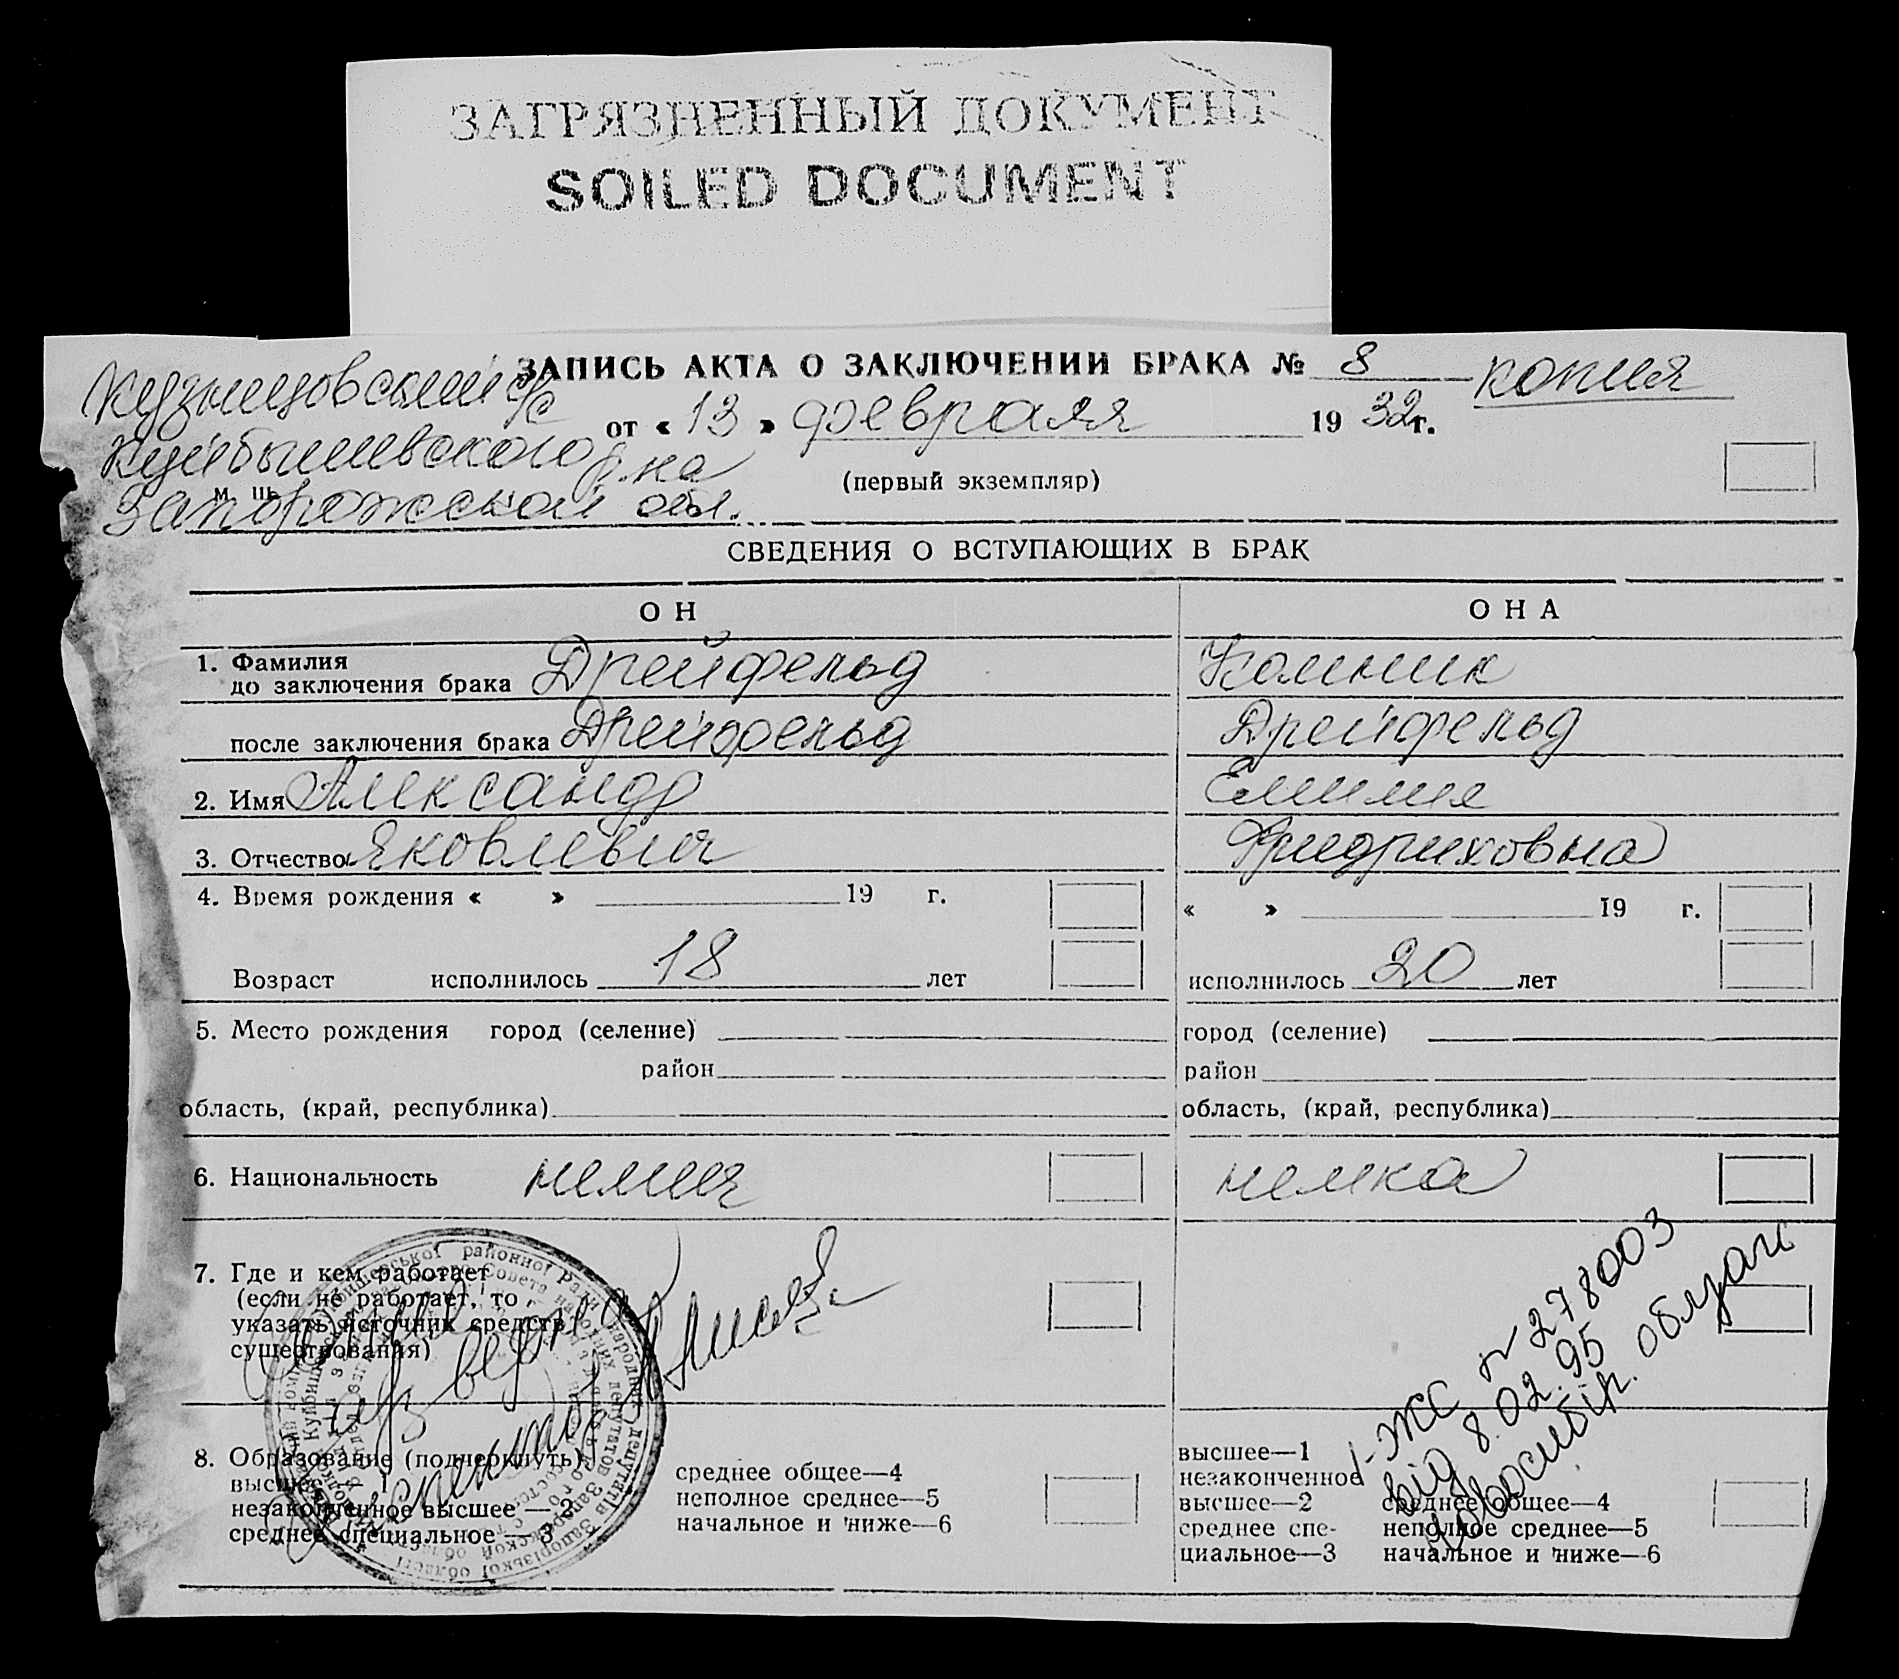 ЗАГРЯЗНЕННЫЙ ДОКУМЕНТ
SOILED DOCUMENT
ЗАПИСЬ АКТА О ЗАКЛЮЧЕНИИ БРАКА № 8 копия
Кузнецовский с/с
от « 13 » февраля 19 32 г.
Куйбышевского р-на
(первый экземпляр)
Запорожской обл.
СВЕДЕНИЯ О ВСТУПАЮЩИХ В БРАК
ОН ОНА
1. Фамилия
до заключения брака Дрейфельд
после заключения брака Дрейфельд Дрейфельд
2. Имя Александр Емилия
3. Отчество Яковлевич Фридриховна
4. Время рождения « » 19 г. « » 19 г.
Возраст исполнилось 18 лет исполнилось 20 лет
5. Место рождения город (селение) город (селение)
район район
область, (край, республика) область, (край, республика)
6. Национальность немец немка
7. Где и кем работает
(если не работает, то
указать источник средств
существования)
верна
1-ЖС № 278003
від 8.02.95
Новосибір. облзаг
8. Образование (подчеркнуть)
высшее—1
незаконченное высшее—2
среднее специальное—3
среднее общее—4
неполное среднее—5
начальное и ниже—6
высшее—1
незаконченное
высшее—2
среднее спе-
циальное—3
среднее общее—4
неполное среднее—5
начальное и ниже—6